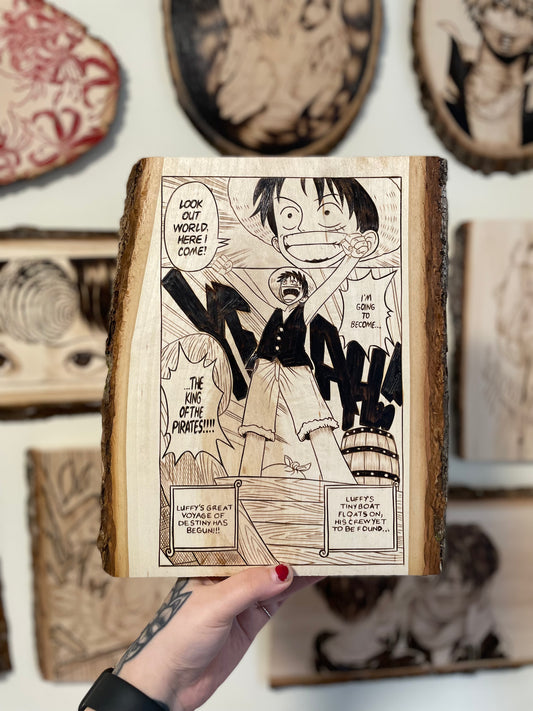 LOOK
OUT
WORLD.
HERE I
COME!
I'M
GOING
TO
BECOME...
YEAH!!
...THE
KING
OF THE
PIRATES!!!!
LUFFY'S GREAT
VOYAGE OF
DESTINY HAS
BEGUN!!!
LUFFY'S
TINY BOAT
FLOATS ON,
HIS CREW YET
TO BE FOUND...